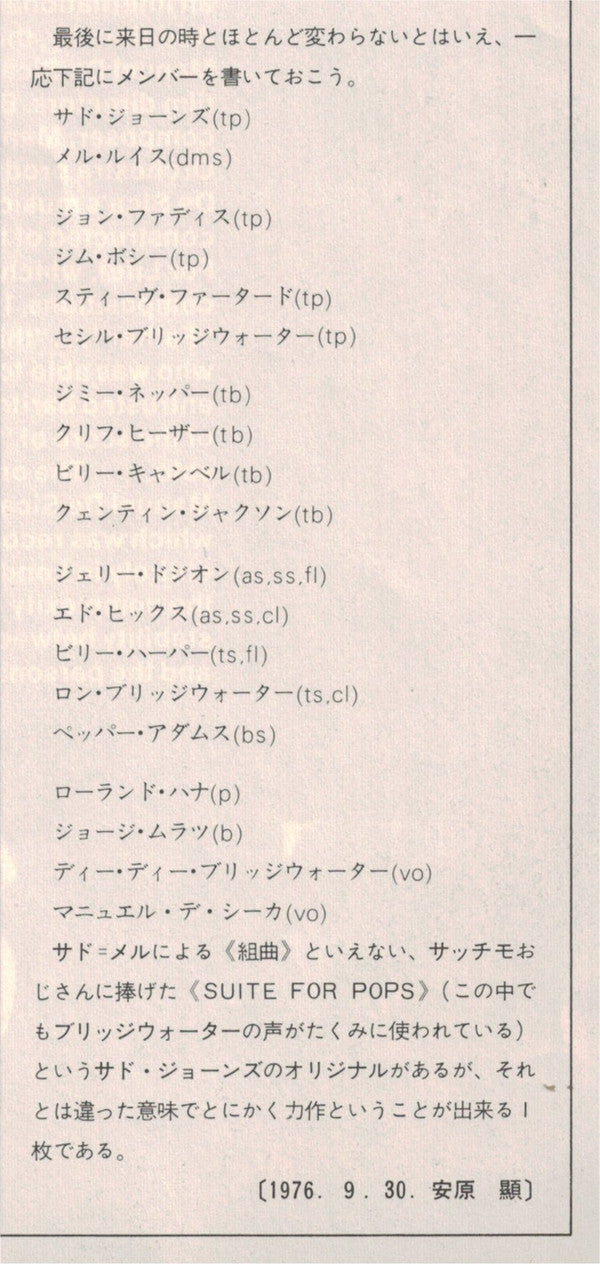 最後に来日の時とほとんど変わらないとはいえ、一
応下記にメンバーを書いておこう。
サド・ジョーンズ(tp)
メル・ルイス(dms)
ジョン・ファディス(tp)
ジム・ボシー(tp)
スティーヴ・ファータード(tp)
セシル・ブリッジウォーター(tp)
ジミー・ネッパー(tb)
クリフ・ヒーザー(tb)
ビリー・キャンベル(tb)
クェンティン・ジャクソン(tb)
ジェリー・ドジオン(as,ss,fl)
エド・ヒックス(as,ss,cl)
ビリー・ハーパー(ts,fl)
ロン・ブリッジウォーター(ts,cl)
ペッパー・アダムス(bs)
ローランド・ハナ(p)
ジョージ・ムラツ(b)
ディー・ディー・ブリッジウォーター(vo)
マニュエル・デ・シーカ(vo)
サド=メルによる《組曲》といえない、サッチモお
じさんに捧げた《SUITE FOR POPS》(この中で
もブリッジウォーターの声がたくみに使われている)
というサド・ジョーンズのオリジナルがあるが、それ
とは違った意味でとにかく力作ということが出来る1
枚である。
〔1976. 9. 30. 安原 顯〕